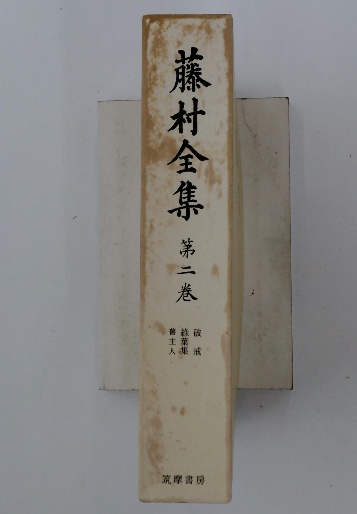 藤村全集
第二巻
破戒
緑葉集
舊主人
筑摩書房